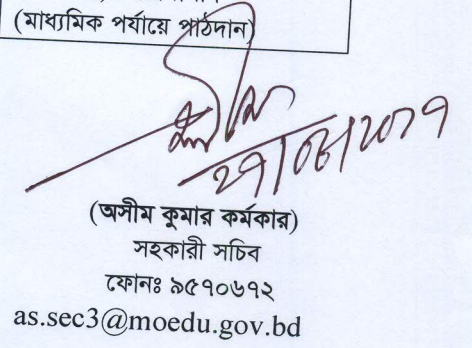 (মাধ্যমিক পর্যায়ে পাঠদান)
(অসীম কুমার কর্মকার)
সহকারী সচিব
ফোনঃ ৯৫৭০৬৭২
as.sec3@moedu.gov.bd